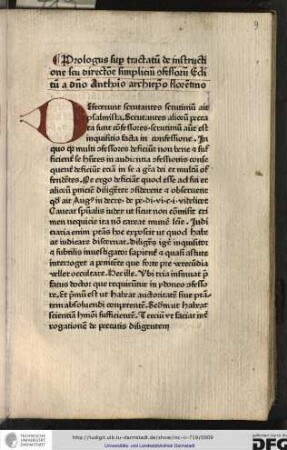 9
Prologus sup tractatū de instructi
one seu directōe simpliciū ofessorū Edi
tū a dño Anthōio archiepo florentino
Defecerunt scrutantes scrutiniū ait
psalmista. Scrutantes alioꝝ pecca
ta sunt cōfessores scrutiniū aut est
inquisitio facta in confessione. In
quo qͥdē multi ofessores deficiūt non bene & suf
ficient se hñtes in audientia ofessionis
quent deficiūt etiā in se a grā dei et multi of
fendētes. Ne ergo deficiat quod esse ad sui et
alioꝝ pnicie diligēter osiderent & obseruent
qd ait Augꝰ in decre. de pe. di. vi. c. i. videlicet
Caueat spūalis iudex ut sicut non cōmisit cri
men nequicie ita nō careat munere scie. Judi
ciaria enim ptās hoc expostulat ut quod habet
iudicare discernat. Diligēs igit inquisitor
& subtilis inuestigator sapiēter & quasi astute
interroget a penitēte que forte pre verecūdia
vellet occultare. Hec ille. Ubi tria insinuat p
fatus doctor que requirūtur in ydoneo ofesso
re. Et pmū est ut habeat auctoritatē siue ptā
tem absoluendi cōpetente. Scdm ut habeat
scientiā hmōi sufficientē. Terciū ut faciat inter
rogationē de peccatis diligentem
http://tudigit.ulb.tu-darmstadt.de/show/inc-ii-719/0009
Universitäts- und Landesbibliothek Darmstadt
TECHNISCHE UNIVERSITÄT DARMSTADT
DFG